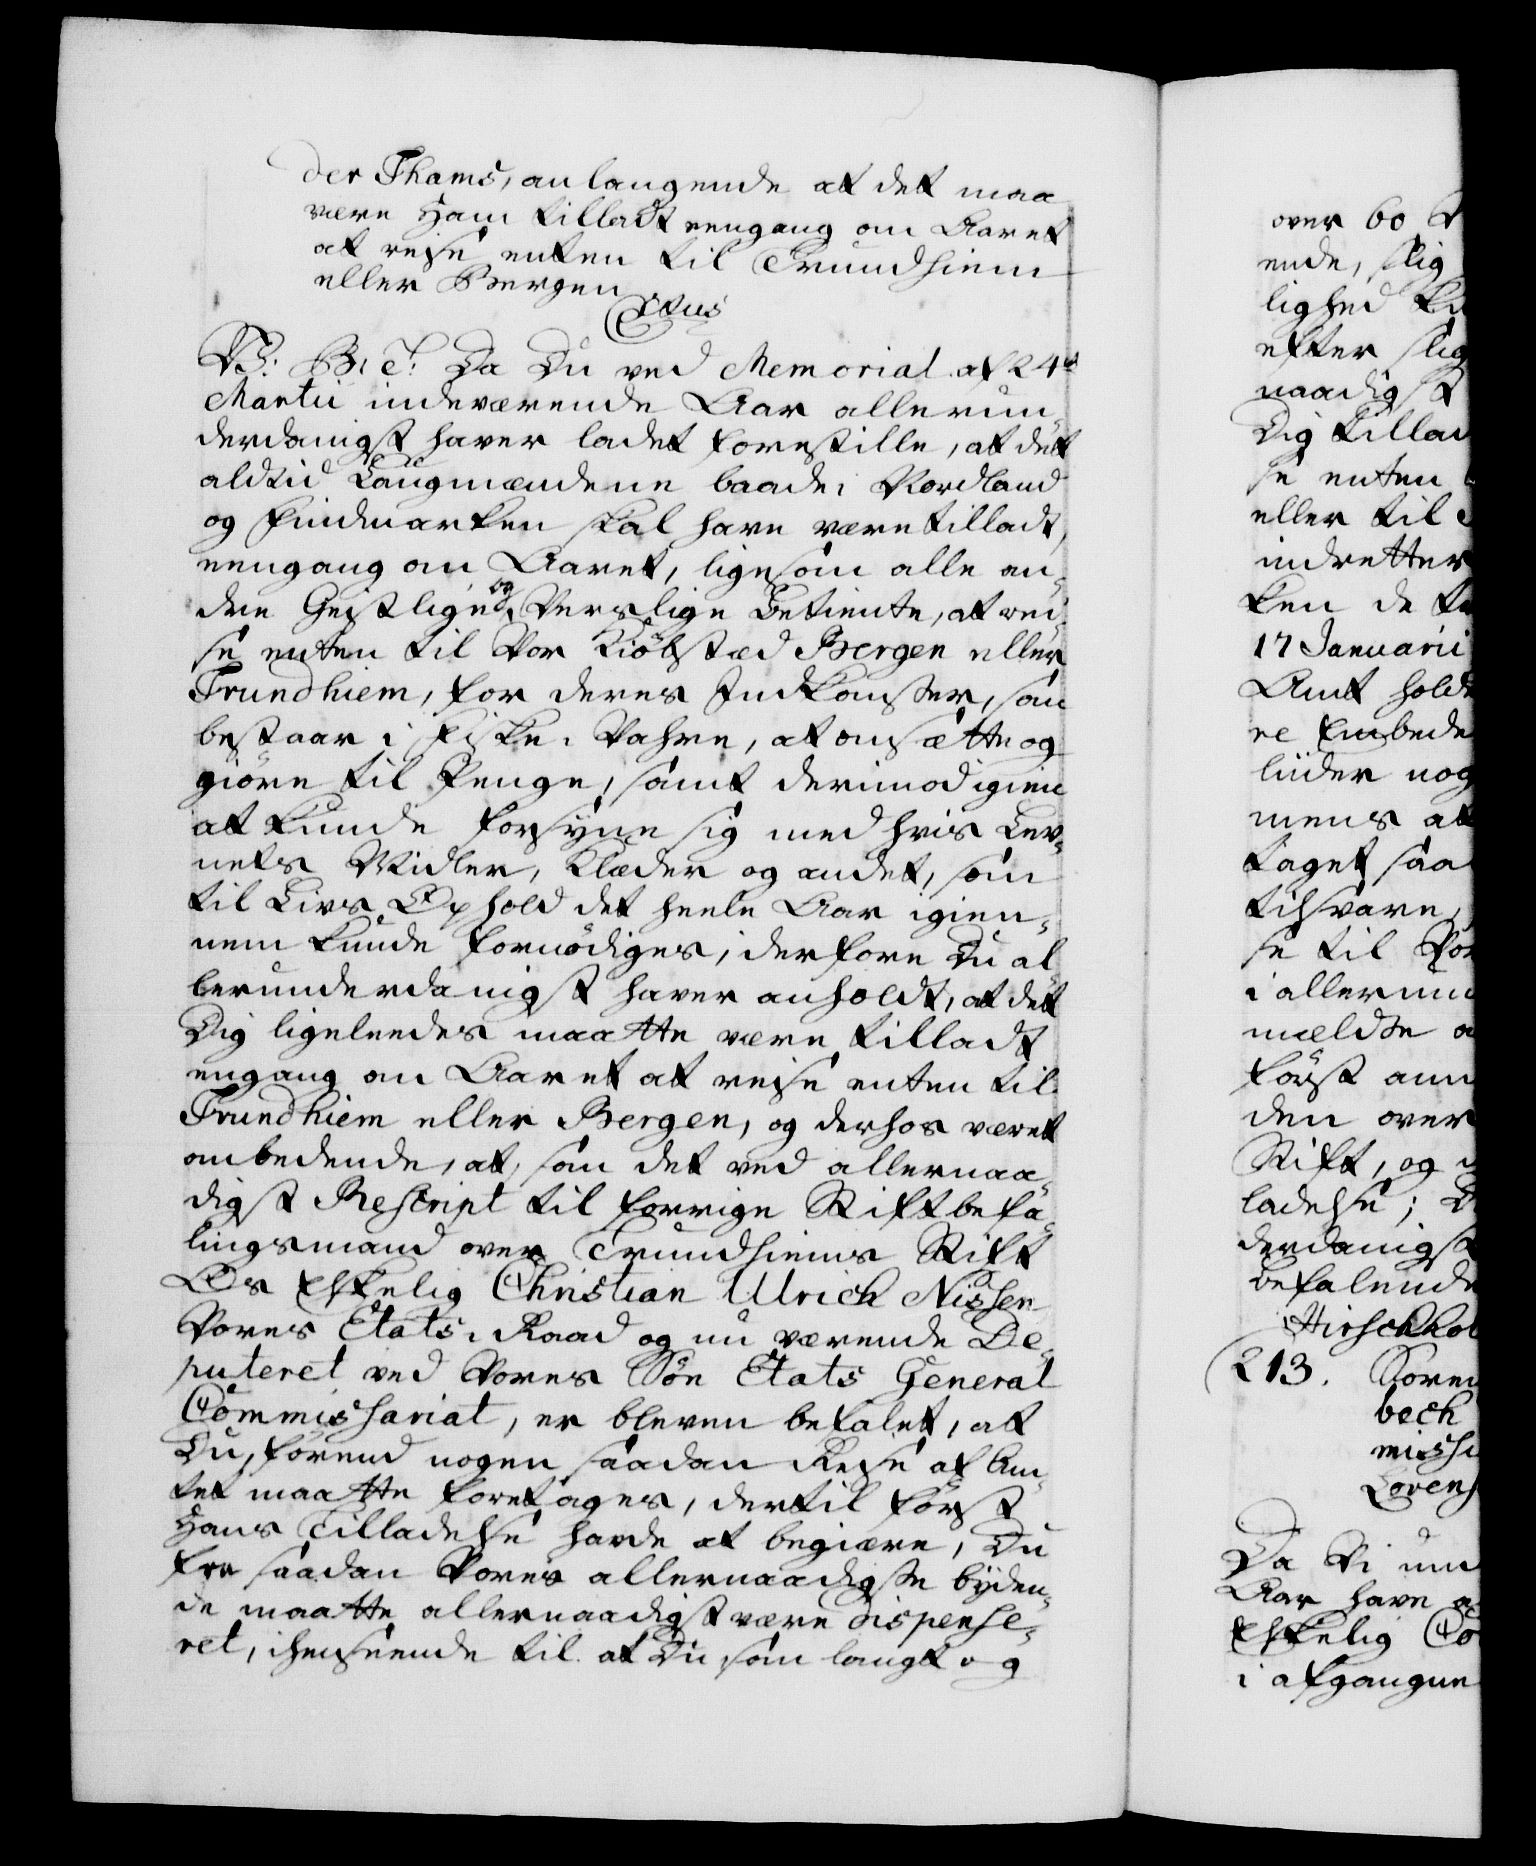 der Thams, anlangende at det maa
være Ham tilladt eengang om Aaret
at reise enten til Trundhiem
eller Bergen
V: B: T: Da Du ved Memorial af 24de
Martii indeværende Aar allerun-
derdanigst haver ladet forestille, at det
altid Laugmændene baade i Nordland
og Findmarken skal have været tilladt,
eengang om Aaret, ligesom alle an-
dre Geistlige og Verslige Betiente, at rei-
se enten til Vor Kiöbstæd Bergen eller
Trundhiem, for deres Indkomster, som
bestaar i Fiske-Vahre, at omsætte og
giöre til Penge, samt derimod igien
at kunde forsÿne sig med hvis Lev-
nets Midler, Klæder og andet, som
til Livs Ophold det heele Aar igien-
nem kunde fornödiges, derfore Du al-
lerunderdanigst haver anholdt, at det
Dig ligeleedes maatte være tilladt
engang om Aaret at reise enten til
Trundhiem eller Bergen, og derhos været
ombedende, at, som det ved allernaa-
digst Rescript til forrige Stiftbefa-
lingsmand over Trundhiems Stift
Os Elskelig Christian Ulrich Nissen
Vores Etats-Raad og nu værende De-
puteret ved Vores Söe Etats General
Commissariat, er bleven befalet, at
Du, förend nogen saadan Reise af Am-
tet maatte foretages, dertil först
Hans Tilladelse havde at begiære, Du
fra saadan Vores allernaadigste bÿden-
de maatte allernaadigst være dispense-
ret, i henseende til at Du som langt og
over 60
ende, slig
lighed
efter slig
naadigst
Dig tillad
se enten
eller til
indretter
ken de
17 Januarii
Amt hold
re Embede
liider nog
mens at
taget saa
tilsvare,
se til Vor
i allerun
mældte a
först ann
den over
Stift, og
ladelse;
derdanigst
befalende
Hirschhol
213. Soren
bech
missi
Lorens
Da Vi und
Aar have a
Elskelig Co
i afgangne